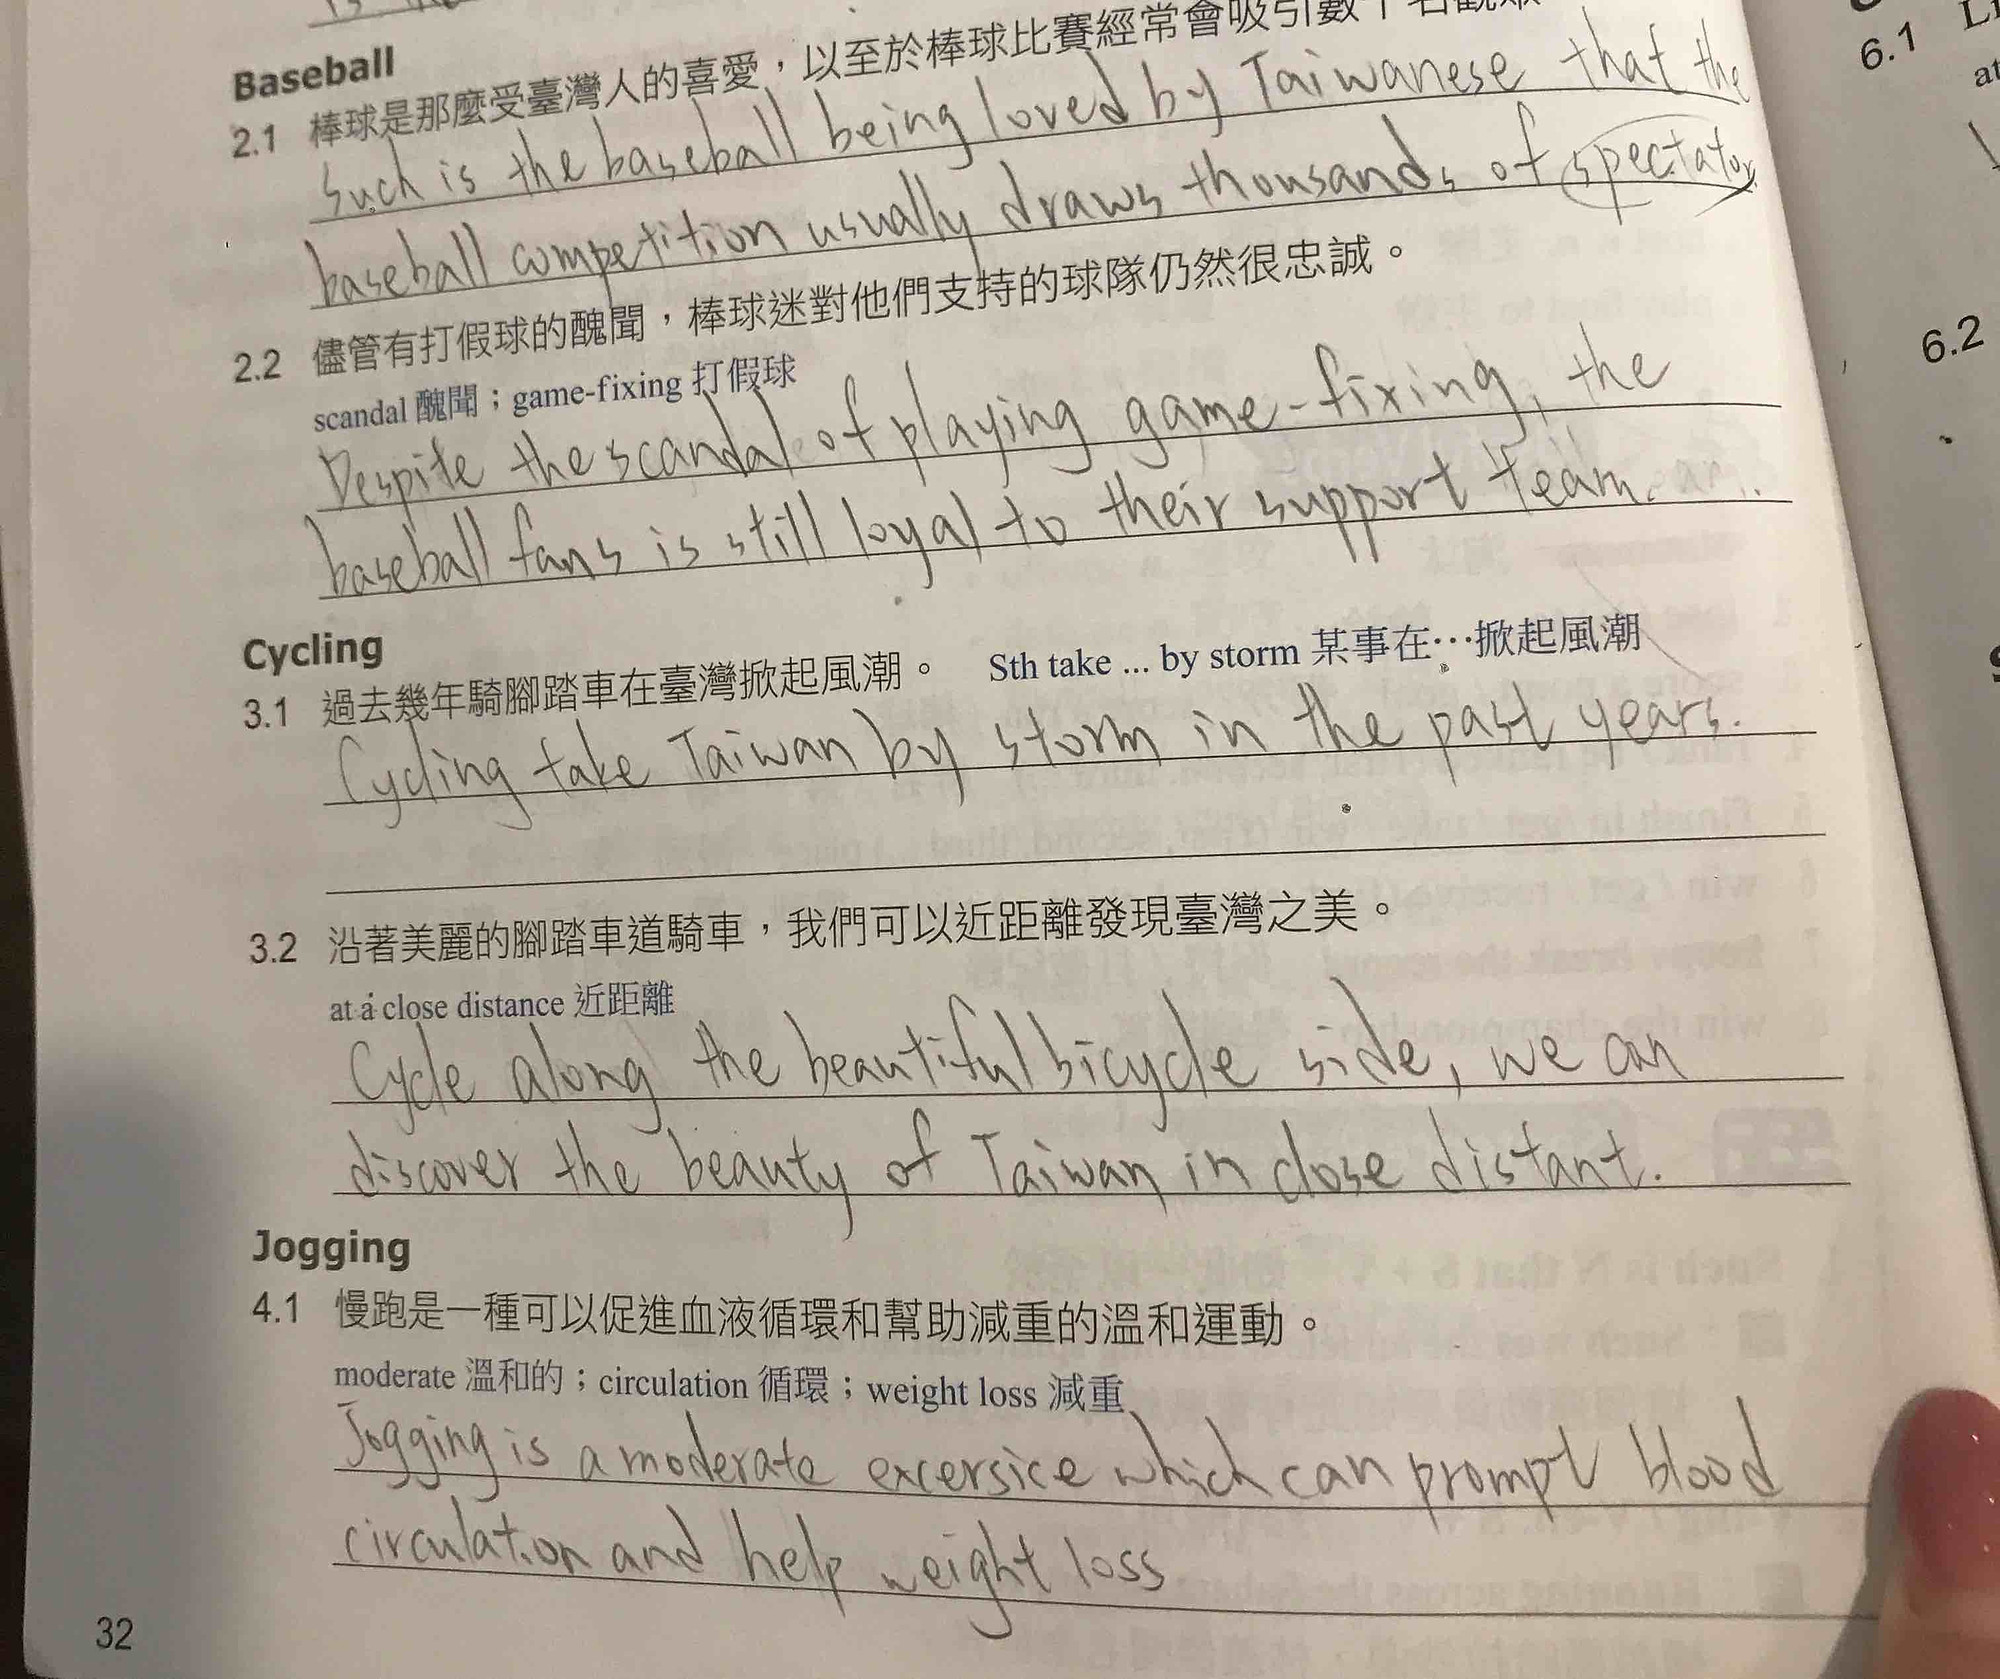 Baseball
2.1 棒球是那麼受臺灣人的喜愛，以至於棒球比賽經常會吸引數千名觀眾
Such is the baseball being loved by Taiwanese that the
baseball competition usually draws thousands of spectator
2.2 儘管有打假球的醜聞，棒球迷對他們支持的球隊仍然很忠誠。
scandal 醜聞；game-fixing 打假球
Despite the scandal of playing game-fixing, the
baseball fans is still loyal to their support team.
Cycling
3.1 過去幾年騎腳踏車在臺灣掀起風潮。 Sth take ... by storm 某事在…掀起風潮
Cycling take Taiwan by storm in the past years.
3.2 沿著美麗的腳踏車道騎車，我們可以近距離發現臺灣之美。
at a close distance 近距離
Cycle along the beautiful bicycle side, we can
discover the beauty of Taiwan in close distant.
Jogging
4.1 慢跑是一種可以促進血液循環和幫助減重的溫和運動。
moderate 溫和的；circulation 循環；weight loss 減重
Jogging is a moderate excersice which can prompt blood
circulation and help weight loss
32
6.1
6.2